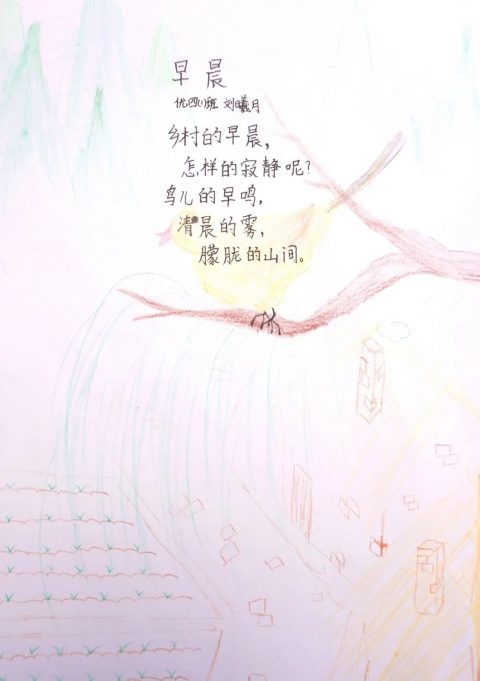 早晨
优四(1)班 刘曦月
乡村的早晨，
怎样的寂静呢？
鸟儿的早鸣，
清晨的雾，
朦胧的山间。